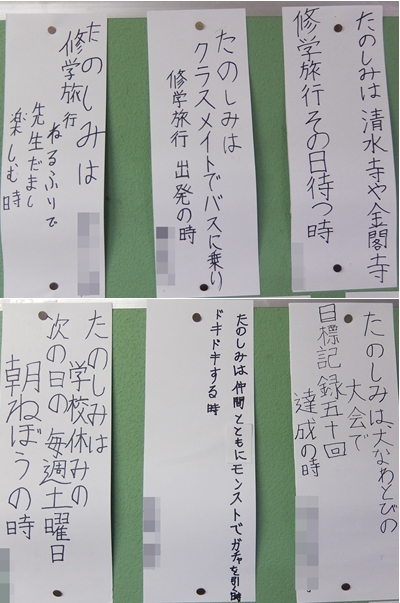 たのしみは清水寺や金閣寺
修学旅行その日待つ時
たのしみは
クラスメイトでバスに乗り
修学旅行 出発の時
たのしみは
修学旅行
ねるふりで
先生だまし
楽しむ時
たのしみは大なわとびの
大会で
目標記録五十回
達成の時
たのしみは仲間とともにモンストでガチャを引く時
ドキドキする時
たのしみは
学校休みの
次の日の毎週土曜日
朝ねぼうの時